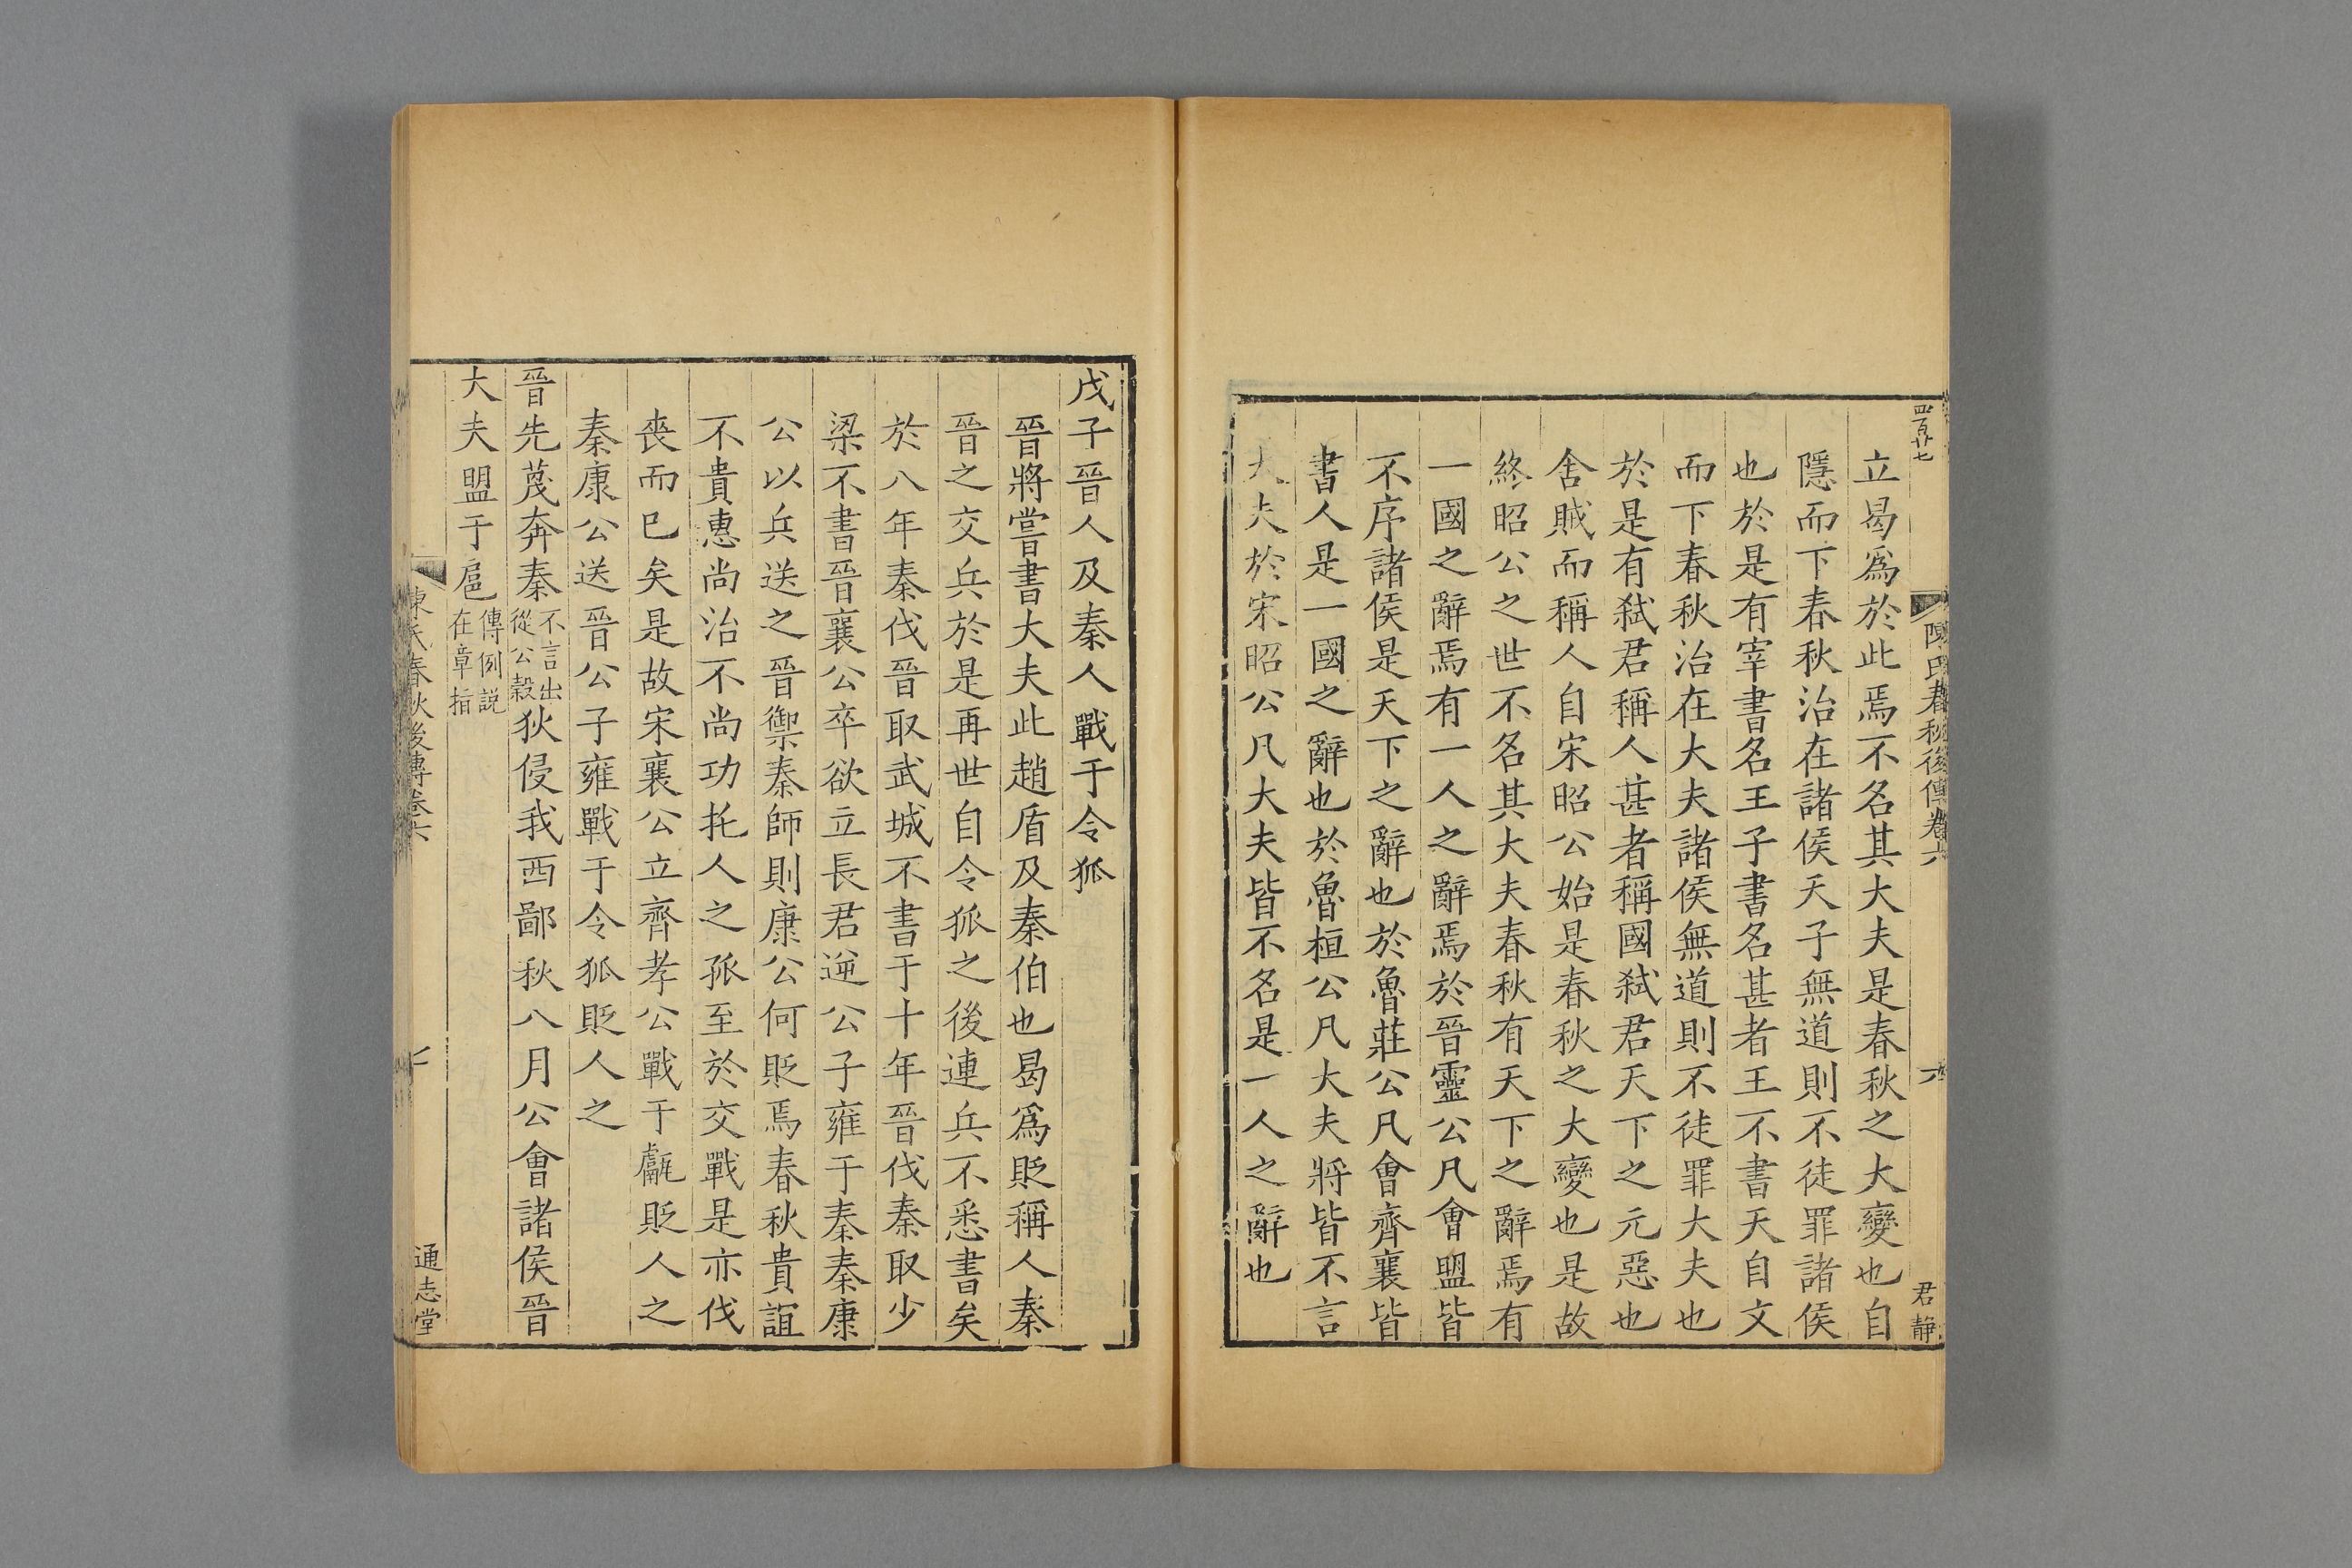 四百廿七
陳氏春秋後傳卷六
六
君靜
立曷為於此焉不名其大夫是春秋之大變也自
隱而下春秋治在諸侯天子無道則不徒罪諸侯
也於是有宰書名王子書名甚者王不書天自文
而下春秋治在大夫諸侯無道則不徒罪大夫也
於是有弑君稱人甚者稱國弑君天下之元惡也
舍賊而稱人自宋昭公始是春秋之大變也是故
終昭公之世不名其大夫春秋有天下之辭焉有
一國之辭焉有一人之辭焉於晉靈公凡會盟皆
不序諸侯是天下之辭也於魯莊公凡會齊襄皆
書人是一國之辭也於魯桓公凡大夫將皆不言
大夫於宋昭公凡大夫皆不名是一人之辭也
戊子晉人及秦人戰于令狐
晉將嘗書大夫此趙盾及秦伯也曷為貶稱人秦
晉之交兵於是再世自令狐之後連兵不悉書矣
於八年秦伐晉取武城不書于十年晉伐秦取少
梁不書晉襄公卒欲立長君逆公子雍于秦秦康
公以兵送之晉禦秦師則康公何貶焉春秋貴誼
不貴惠尚治不尚功托人之孤至於交戰是亦伐
喪而巳矣是故宋襄公立齊孝公戰于甗貶人之
秦康公送晉公子雍戰于令狐貶人之
晉先蔑奔秦不言出從公穀狄侵我西鄙秋八月公會諸侯晉
大夫盟于扈傳例説在章指
陳氏春秋後傳卷六
七
通志堂